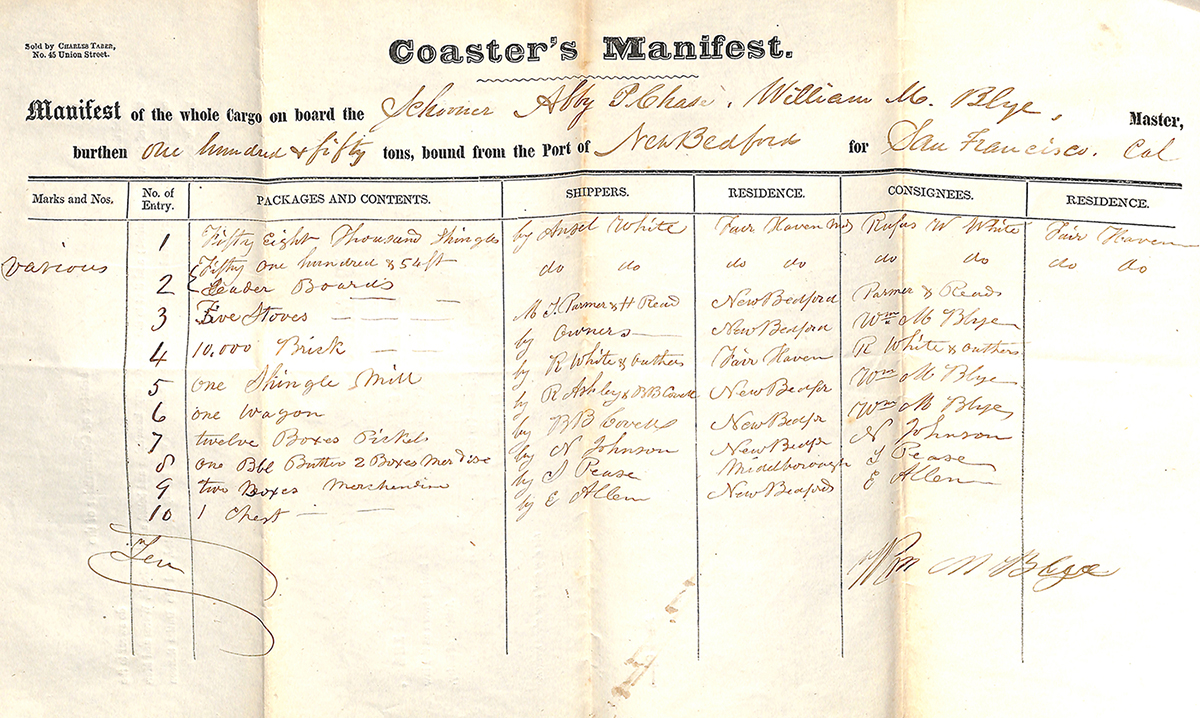 Sold by CHARLES TABER,
No. 45 Union Street.
Coaster's Manifest.
Manifest of the whole Cargo on board the Schooner Abby P. Chase, William M. Blye, Master,
burthen one hundred & fifty tons, bound from the Port of New Bedford for San Francisco. Cal
Marks and Nos. No. of Entry. PACKAGES AND CONTENTS. SHIPPERS. RESIDENCE. CONSIGNEES. RESIDENCE.
1 Fifty Eight Thousand Shingles by Ansel White Fair Haven Rufus W White Fair Haven
various Fifty one hundred & 54 ft do do do do do do do do
2 Ceader Boards
3 Five Stoves M T Parmer & H Read New Bedford Parmer & Reads
by Owners New Bedford Wm M Blye
4 10,000 Brick by R White & outhers Fair Haven R White & outhers
5 one Shingle Mill by R Ashley & B B Covell New Bedfor Wm M Blye
6 one Wagon by B B Covells New Bedfr Wm M Blye
7 twelve Boxes Pickels by N Johnson New Bedfr N Johnson
8 one Bbl Butter 2 Boxes Merdise by J Pease Middelborough J Pease
9 two Boxes Merchendise by E Allen New Bedford E Allen
10 1 Chest
Ten
Wm M Blye